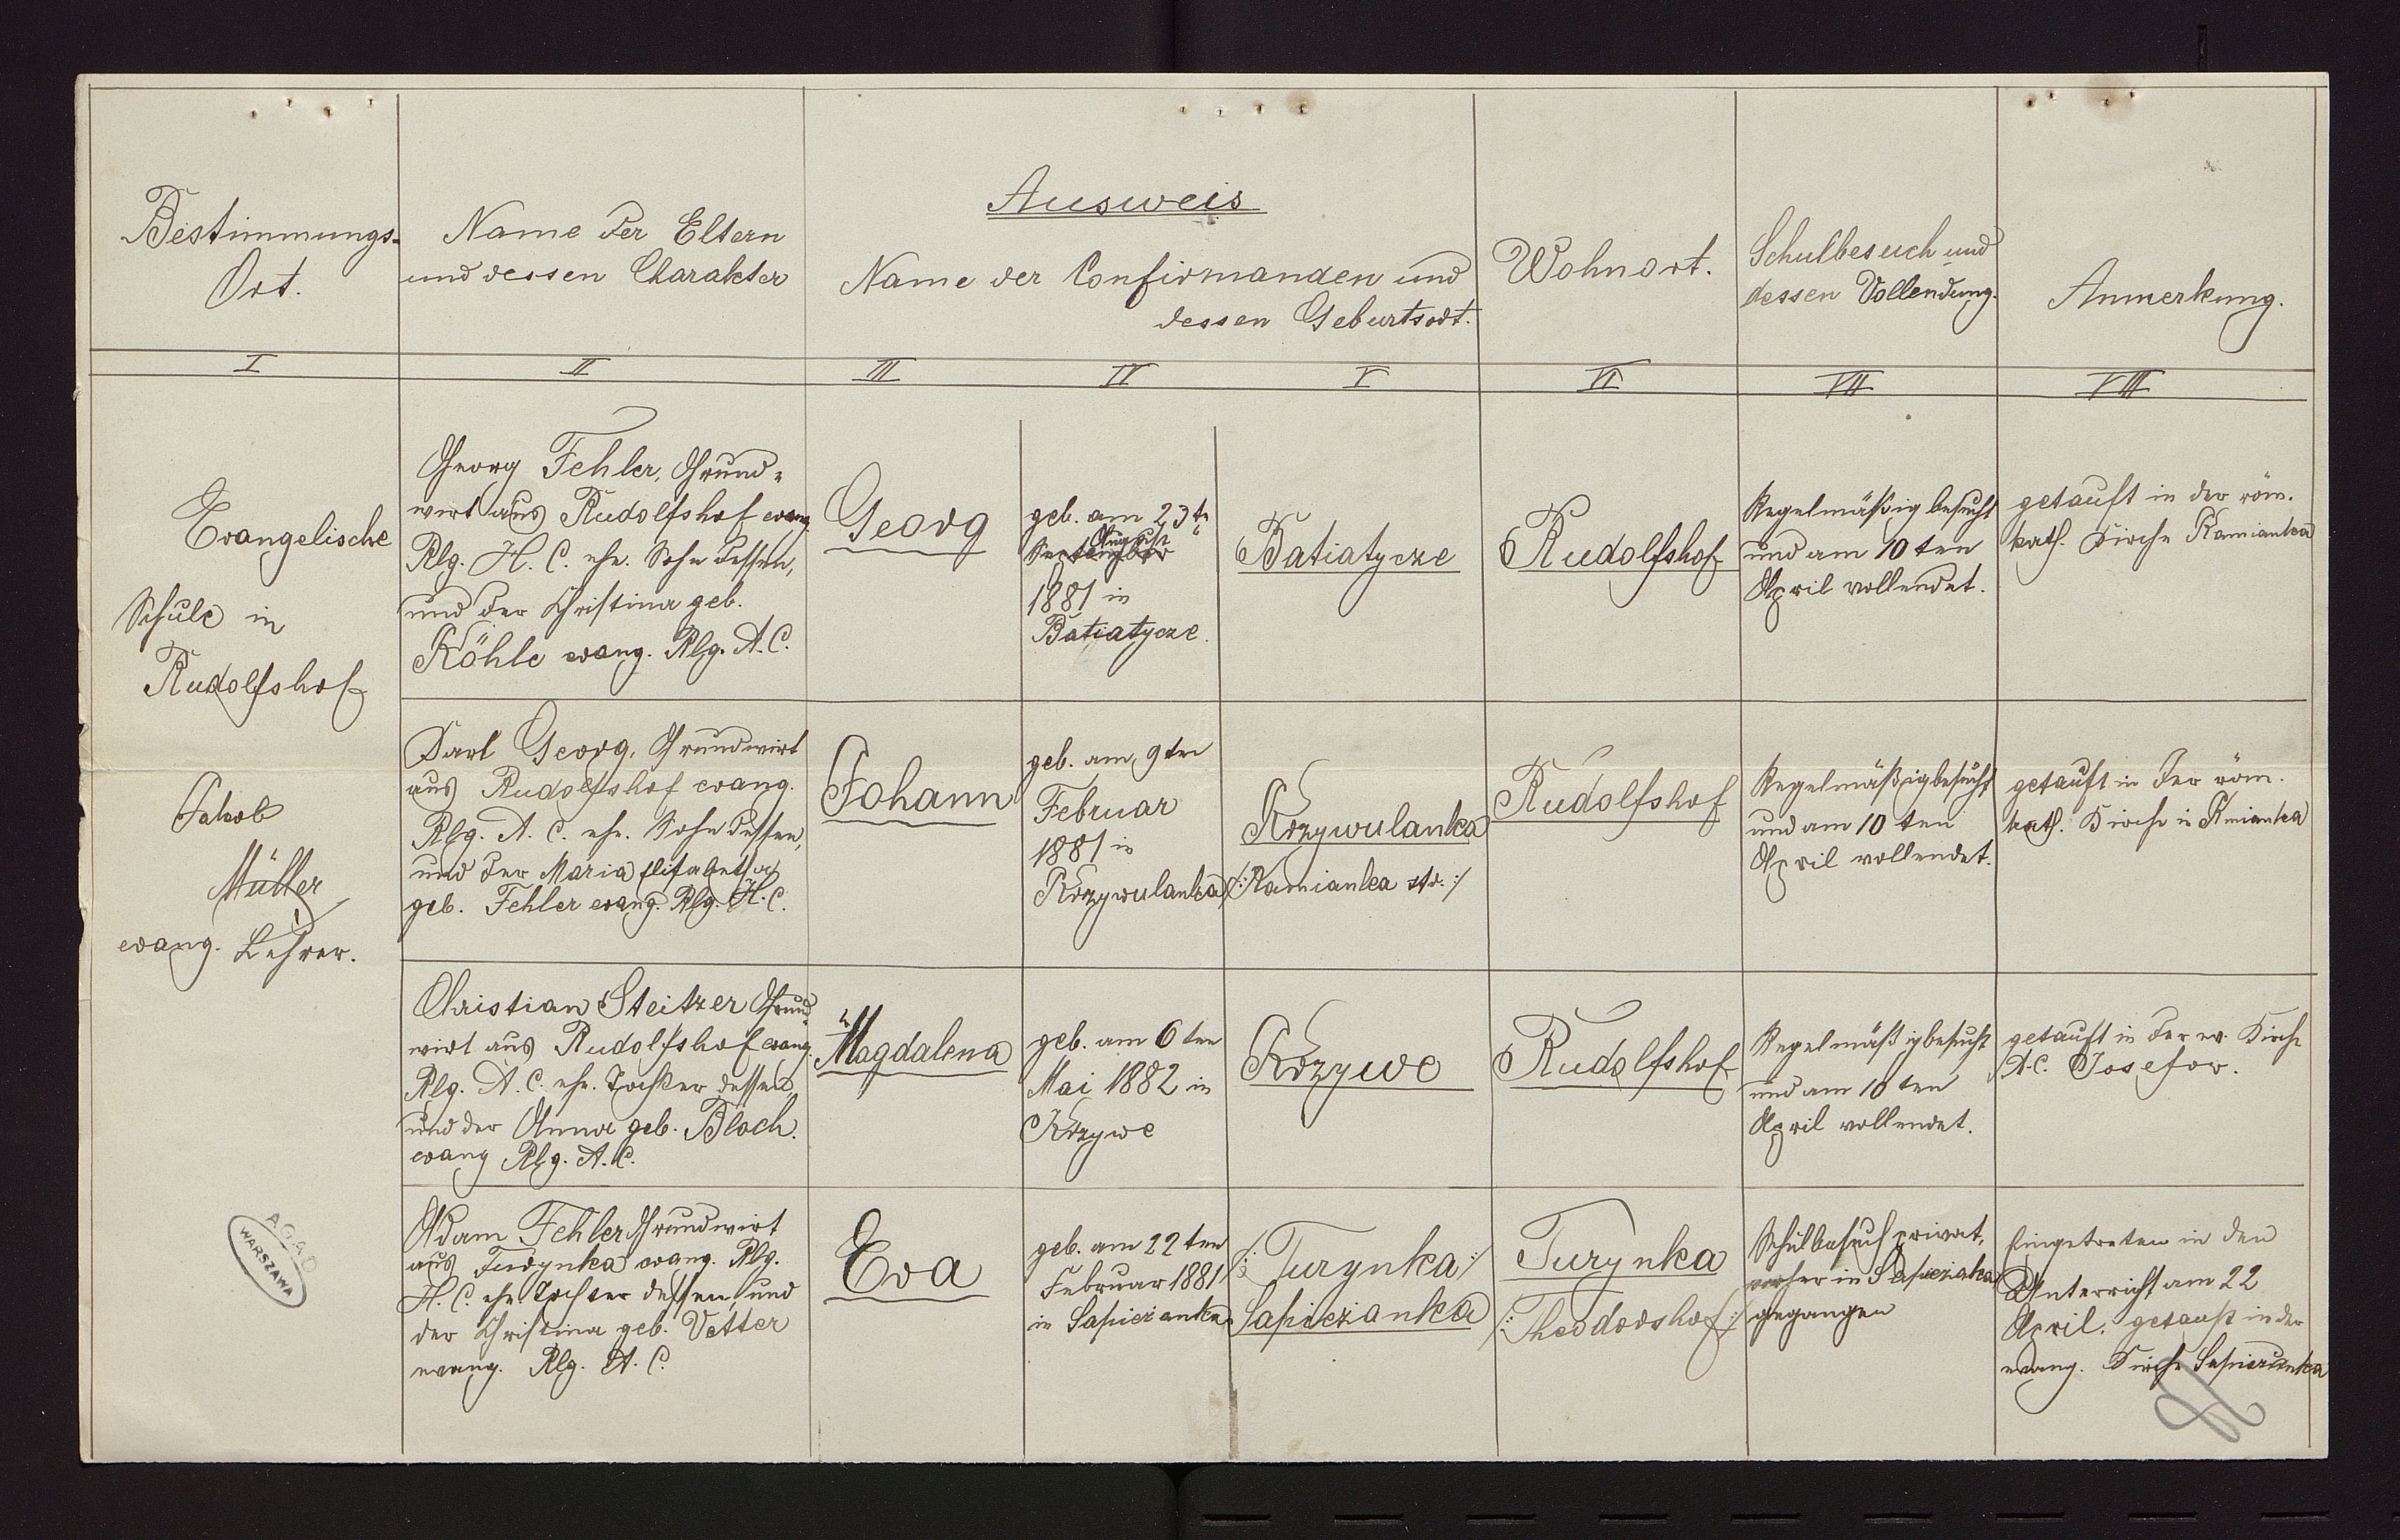 Bestimmungs-
Ort.
Name der Eltern
und dessen Charakter
Ausweis
Name der Confirmanden und
dessen Geburtsort.
Wohnort.
Schulbesuch und
dessen Vollendung.
Anmerkung.
I
II
III
IV
V
VI
VII
VIII
Evangelische
Schule in
Rudolfshof
Jakob
Müller
evang. Lehrer.
Georg Fehler, Grund-
wirt aus Rudolfshof evang.
Rlg. H. C. ehe. Sohn dessen,
und der Christina geb.
Köhle evang. Rlg. A. C.
Georg
geb. am 23t.
August
September
1881 in
Batiatycze.
Batiatycze
Rudolfshof
Regelmäßig besucht
und am 10 ten
April vollendet.
getauft in der röm.
kath. Kirche Kamianka
Georg, Grundwirt
aus Rudolfshof evang.
Rlg. A. C. ehe. Sohn dessen,
und der Maria Elisabetha
geb. Fehler evang. Rlg. H. C.
Johann
geb. am 9ten
Februar
1881 in
Krzywulanka
Krzywulanka
/:Kamianka str.:/
Rudolfshof
Regelmäßig besucht
und am 10 ten
April vollendet.
getauft in der röm.
kath. Kirche in Kmianka
Christian Steitzer Grund-
wirt aus Rudolfshof evang.
Rlg. A. C. ehe. Tochter dessen,
und der Anna geb. Bloch.
evang Rlg. A. C.
Magdalena
geb. am 6 ten
Mai 1882 in
Krzywe
Krzywe
Rudolfshof
Regelmäßig besucht
und am 10 ten
April vollendet.
getauft in der ev. Kirche
A. C. Josefow.
Adam Fehler Grundwirt
aus Turynka evang. Rlg.
H. C. ehe. Tochter dessen, und
der Christina geb. Vetter
evang. Rlg. A. C.
Eva
geb. am 22 ten
Februar 1881
in Sapiezanka
/:Turynka:/
Sapiezanka
Turynka
/:Theodorshof:/
Schulbesuch privat,
vorher in Sapiezanka
gegangen
Eingetreten in den
Unterricht am 22
April. getauft in der
evang. Kirche Sapiezanka
AGAD
WARSZAWA